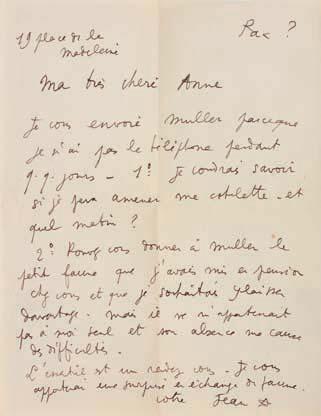 19 place de la
Madeleine
Ma très cheri Anne
Je vous envoie Muller parceque
je n'ai pas le téléphone pendant
q.q. jours - 1º: Je voudrais savoir
si je peux amener me - et
quel matin ?
2º: vous donner à Muller le
petit faune que j'avais mis en pension
chez vous et que je souhaitais y laisser
davantage. Mais il ne m'appartenait
pas à moi seul et son absence me cause
des difficultés.
est un rendez vous. Je vous
une surprise en échange du faune.
votre Jean